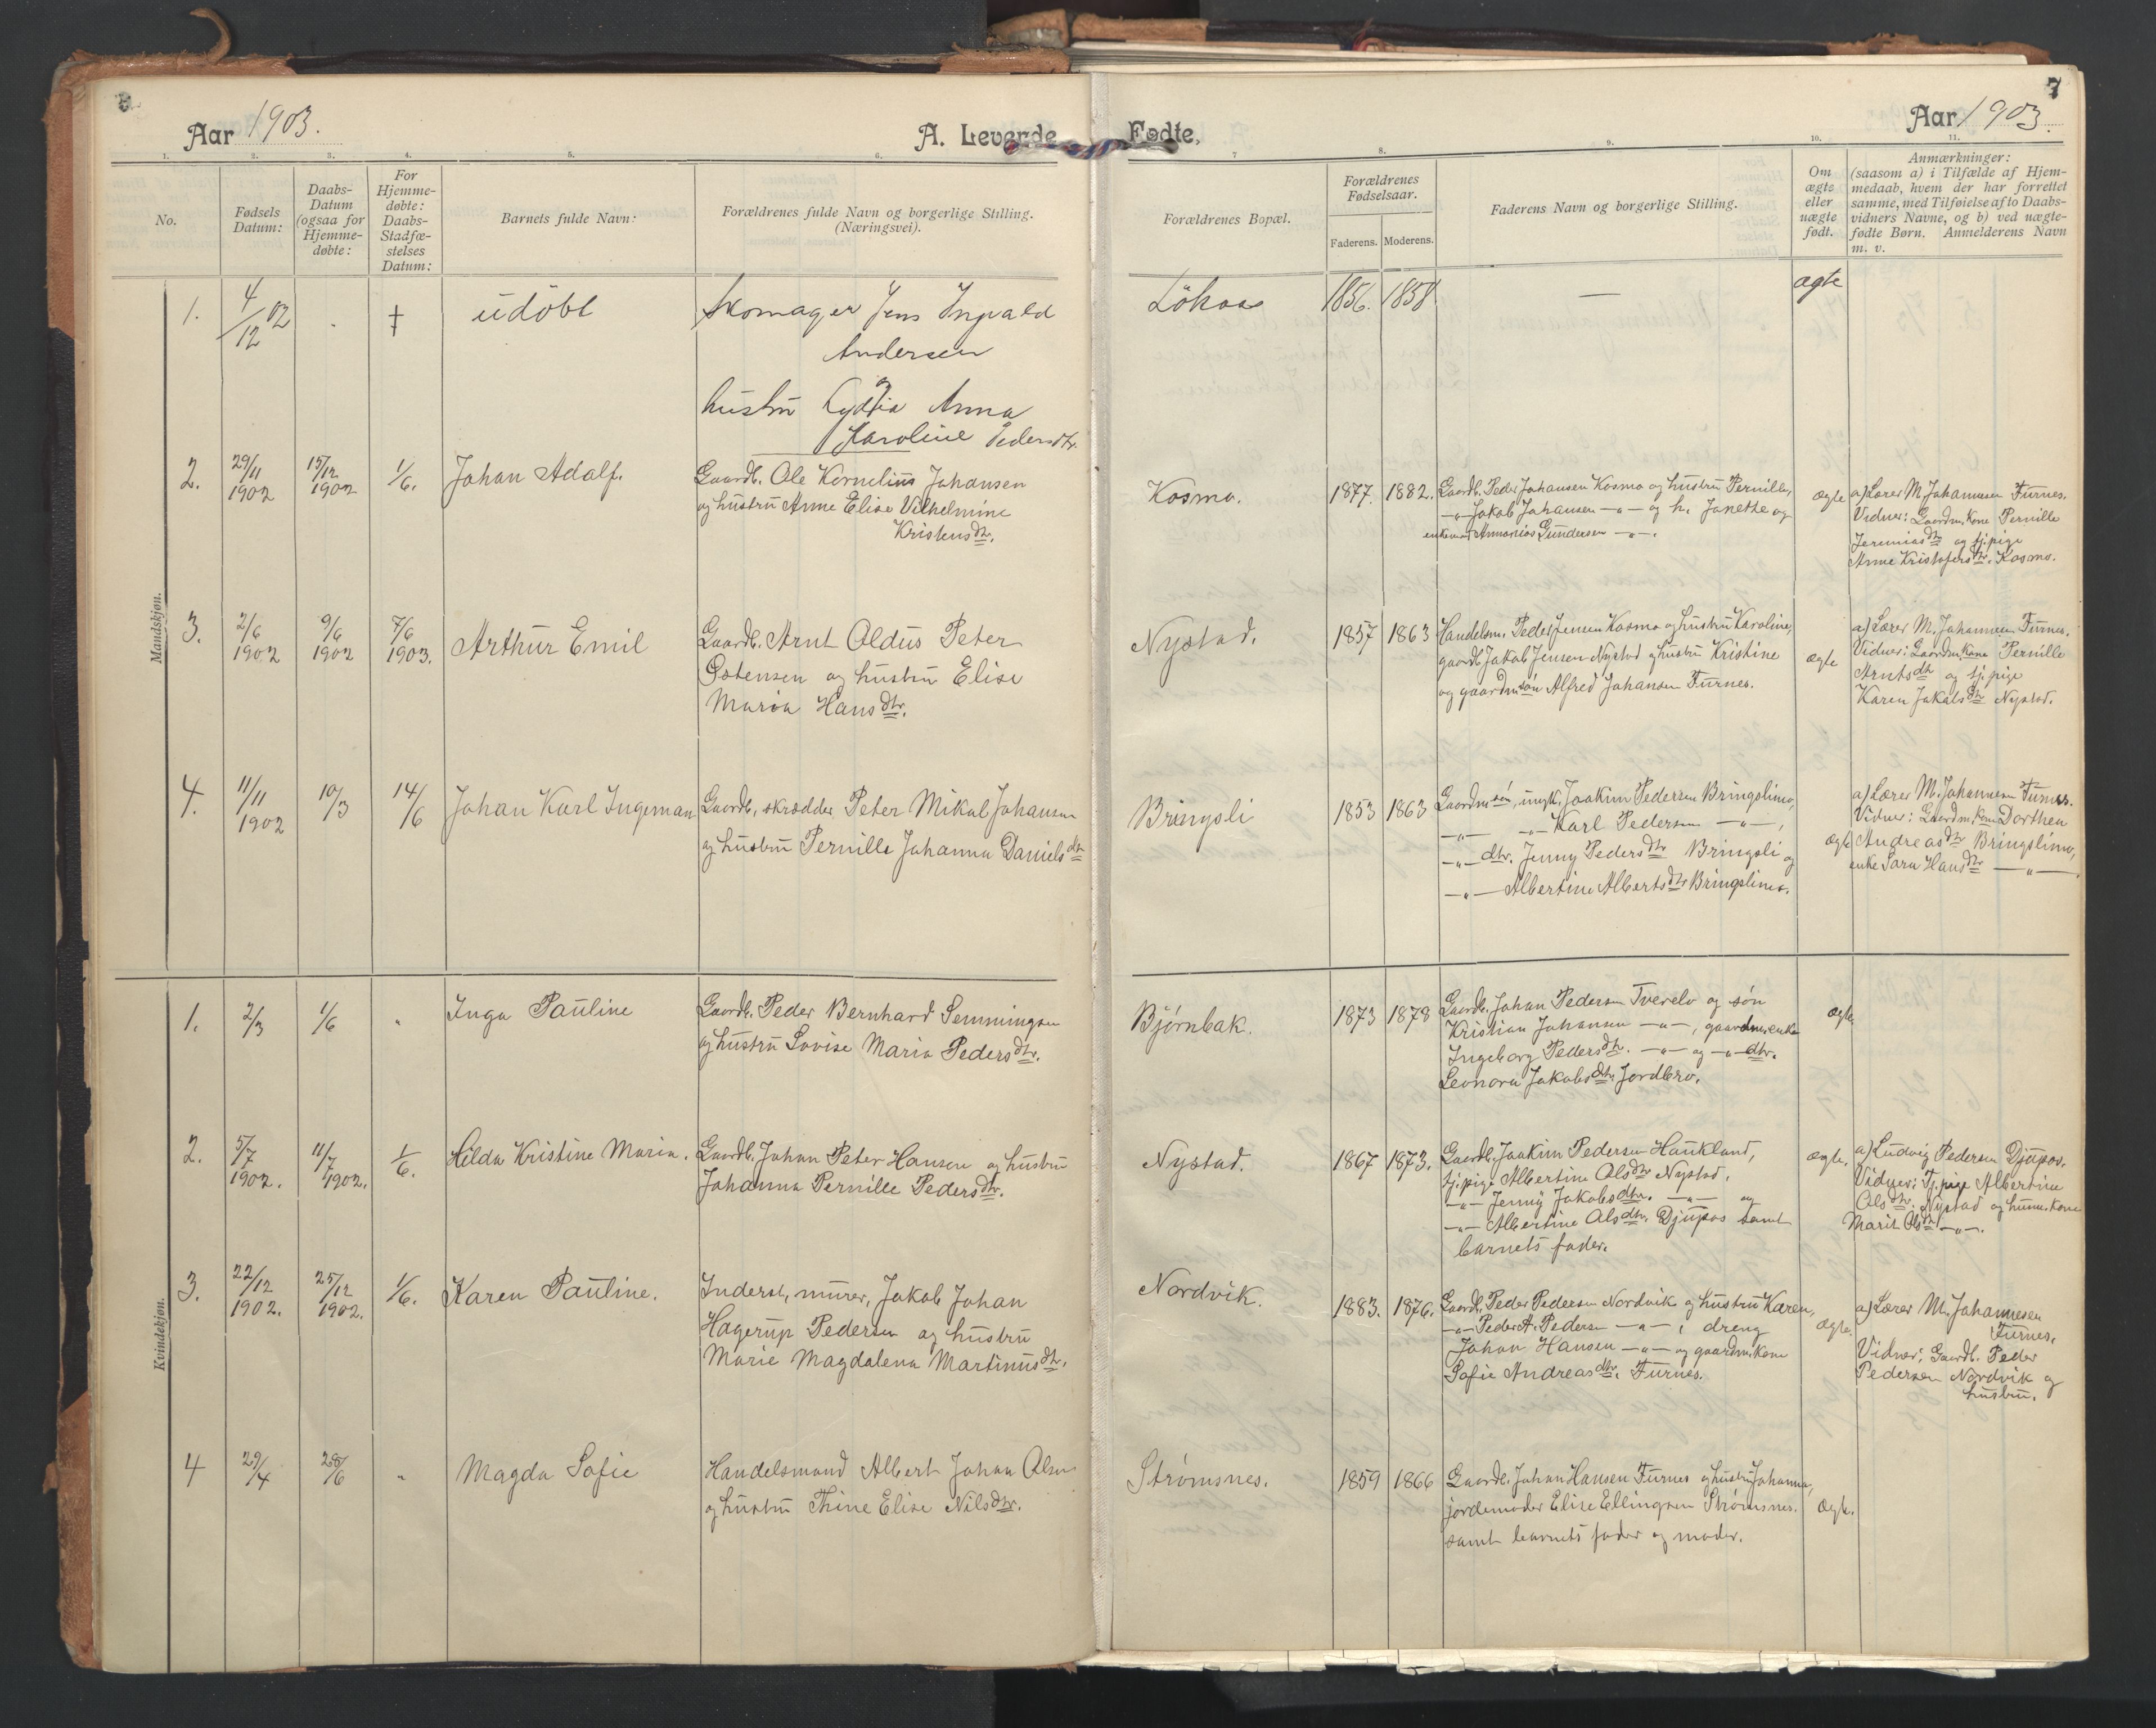 Aar 1903.
A. Levende
Fødte,
7
Aar 1903.
1. 2. 3. 4. 5. 6. 7 8. 9. 10. 11.
No.
Fødsels
Datum:
Daabs-
Datum
(ogsaa for
Hjemme-
døbte:
For
Hjemme-
døbte:
Daabs-
Stadfæ-
stelses
Datum:
Barnets fulde Navn:
Forældrenes fulde Navn og borgerlige Stilling.
(Næringsvei).
Forældrenes Bopæl.
Forældrenes
Fødselsaar.
Faderens. Moderens.
Faderens Navn og borgerlige Stilling.
Om
ægte
eller
uægte
født.
Anmærkninger:
(saasom a) i Tilfælde af Hjem-
medaab, hvem der har forrettet
samme, med Tilføielse af to Daabs-
vidners Navne, og b) ved uægte-
fødte Børn. Anmelderens Navn
m. v.
Mandskjøn.
1.
4/12 02
†
udöbt
Skomager Jens Ingvald
Andersen
hustru Lydia Anna
Karoline Pedersdtr.
Lökaas
1856. 1858
—
ægte
2.
29/11
1902
15/12
1902
1/6.
Johan Adolf.
Gaardb. Ole Kornelius Johansen
og hustru Anne Elise Vilhelmine
Kristensdtr.
Kosmo.
1877. 1882.
Gaardb. Peder Johansen Kosmo og hustru Pernille,
-"- Jakob Johansen -"- og h. Janethe og
enkemd Annanias Gundersen -"-.
ægte
a) Lærer M. Johannesen Furnes.
Vidner: Gaardm. kone Pernille
Jeremiasdtr og tj. pige
Anne Kristofersdtr. Kosmo.
3.
2/6
1902
9/6
1902
7/6
1903.
Arthur Emil
Gaardb. Arnt Oldus Peter
Østensen og hustru Elise
Maria Hansdtr.
Nystad.
1857 1863
Handelsm. Peder Jensen Kosmo og hustru Karoline,
gaardb. Jakob Jensen Nystad og hustru Kristine
og gaardm. søn Alfred Johansen Furnes.
ægte
a) Lærer M. Johannesen Furnes.
Vidner: Gaardm. kone Pernille
Arntsdtr og tj. pige
Karen Jakobsdtr Nystad.
4.
11/11
1902
10/3
14/6
Johan Karl Ingeman
Gaardb., skrædder Peter Mikal Johansen
og hustru Pernille Johanna Danielsdtr
Bringsli
1853 1863
Gaardm. søn, ungk. Joakim Pedersen Bringslimo,
-"- -"- Karl Pedersen -"-,
-"- dtr. Jenny Pedersdtr Bringsli og
-"- Albertine Albertsdtr Bringslimo.
ægte
a) Lærer M. Johannesen Furnes.
Vidner: Gaardm. kone Dorthea
Andreasdtr Bringslimo,
enke Sara Hansdtr -"-.
Kvindekjøn.
1.
2/3
1/6
"
Inga Pauline
Gaardb. Peder Bernhard Semmingsen
og hustru Lovise Maria Pedersdtr.
Bjørnbak.
1873 1878
Gaardb. Johan Pedersen Tverelv og søn
Kristian Johansen -"-, gaardm. enke
Ingeborg Pedersdtr. -"- og -"- dtr.
Leonora Jakobsdtr. Jordbro.
ægte
2.
5/7
1902.
11/7
1902.
1/6.
Hilda Kristine Maria.
Gaardb. Johan Peter Hansen og hustru
Johanna Pernille Pedersdtr.
Nystad.
1867 1873.
Gaardb. Joakim Pedersen Haukland,
tj. pige Albertine Olsdtr Nystad,
-"- Jenny Jakobsdtr. -"- og
-"- Albertine Olsdtr. Djupos samt
barnets fader.
ægte.
a) Ludvig Pedersen Djupos.
Vidner: Tj. pige Albertine
Olsdtr. Nystad og husm. kone
Marit Olsdtr -"-.
3.
22/12
1902.
25/12
1902.
1/6.
Karen Pauline.
Inderst, murer, Jakob Johan
Hagerup Pedersen og hustru
Marie Magdalena Martinusdtr.
Nordvik.
1883. 1876.
Gaardb. Peder Pedersen Nordvik og hustru Karen,
-"- Peder A. Pedersen -"-, dreng
Johan Hansen -"- og gaardm. kone
Sofie Andreasdtr. Furnes.
ægte.
a) Lærer M. Johannesen
Furnes.
Vidner: Gaardb. Peder
Pedersen Nordvik og
hustru.
4
29/4
28/6
"
Magda Sofie
Handelsmand Albert Johan Olsen
og hustru Thine Elise Nilsdtr.
Strømsnes.
1859 1866
Gaardb. Johan Hansen Furnes og hustru Johanna,
jordemoder Elise Ellingsen Strømsnes.
samt barnets fader og moder.
ægte.